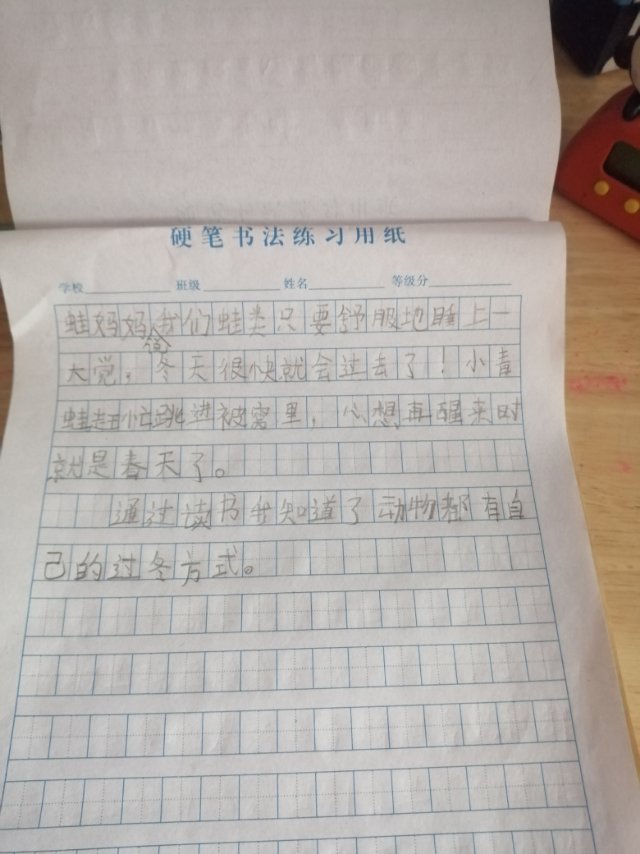 硬笔书法练习用纸
学校 班级 姓名 等级分
蛙妈妈说我们蛙类只要舒服地睡上一
大觉，冬天很快就会过去了！小青
蛙赶忙跳进被窝里，心想再醒来时
就是春天了。
通过读书我知道了动物都有自
己的过冬方式。